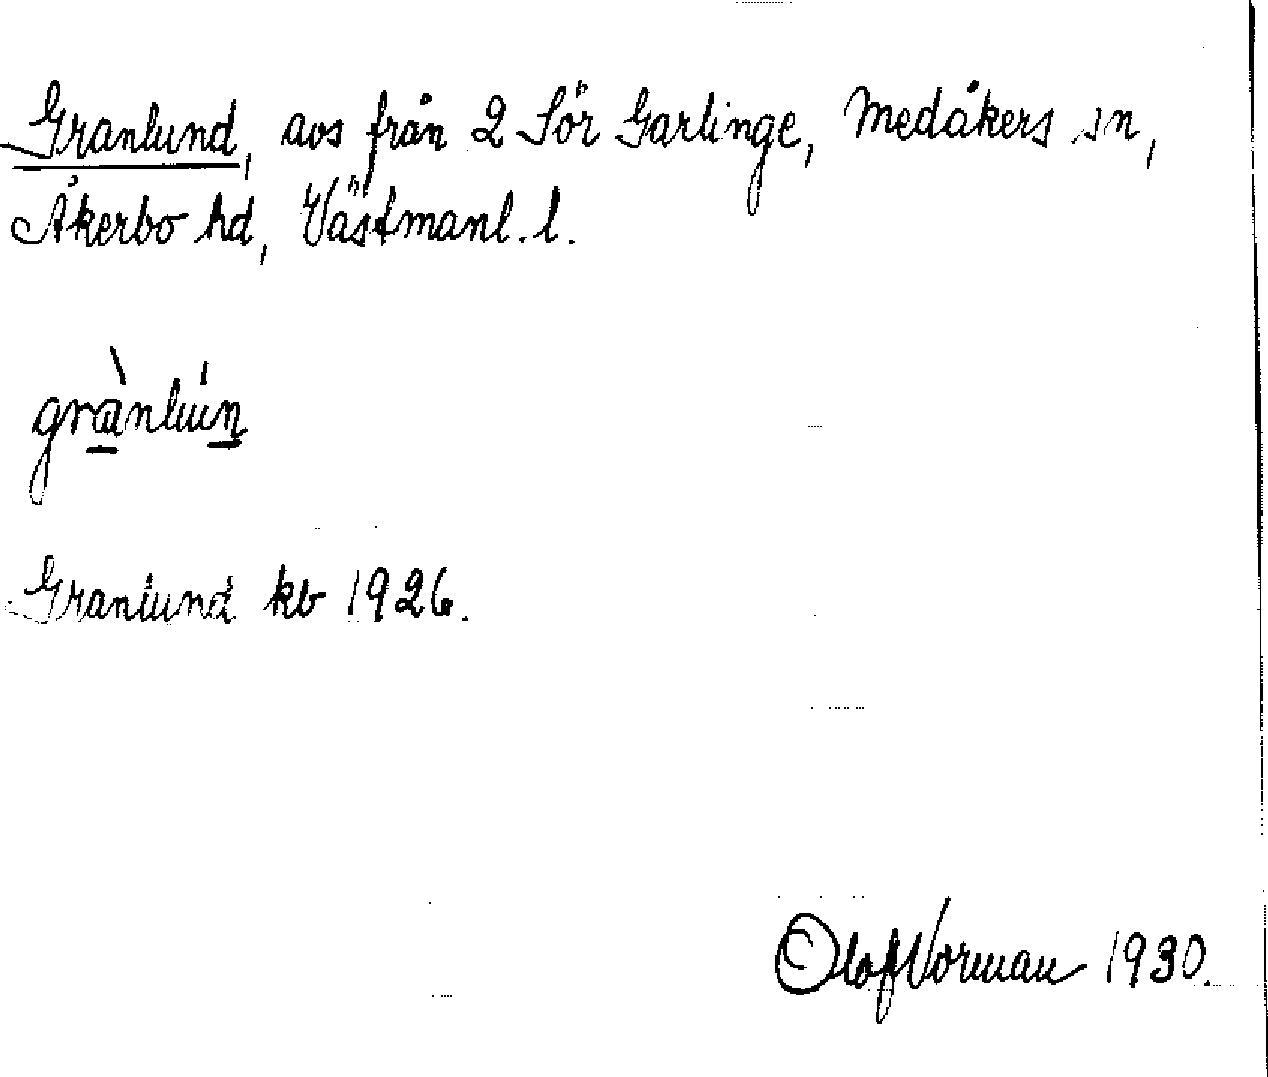 Granlund, avs från 2 Sör Garlinge, Medåkers sn,
Åkerbo hd, Västmanl. l.
grànlún
Granlund kb 1926.
Olof Norman 1930.